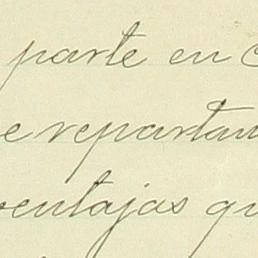 parte en c
e repartan
ventajas qu